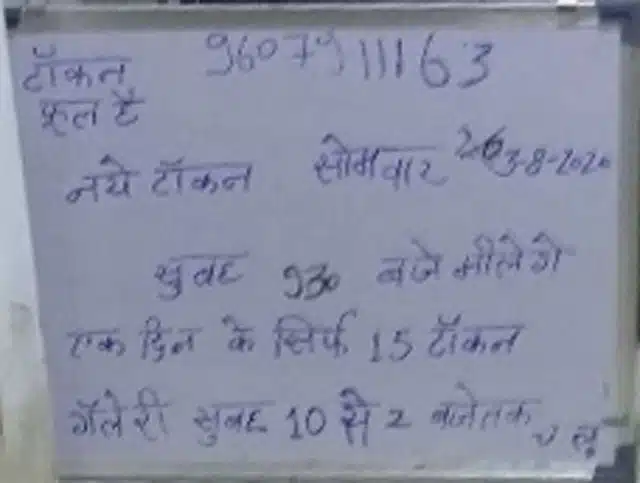 टॉकन 9607911163
फूल है
नये टॉकन सोमवार 3-8-2020
सुबह 930 बजे मीलेगे
एक दिन के सिर्फ 15 टॉकन
गॅलेरी सुबह 10 से 2 बजेतक चालू